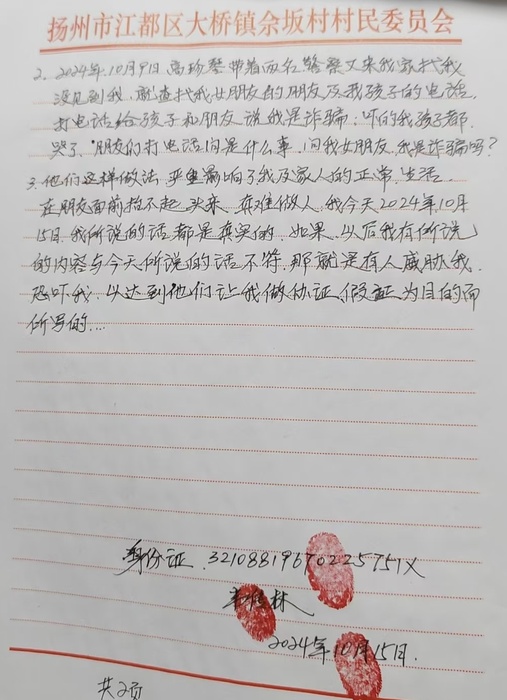 扬州市江都区大桥镇佘坂村村民委员会
2. 2024年10月9日 高 琴带着两名警察又来我家找我
没见到我. 就查找我女朋友的朋友及我孩子的电话.
打电话给孩子和朋友说我是诈骗. 吓的我孩子都
哭了. 朋友们打电话问是什么事. 问我女朋友. 我是诈骗吗?
3. 他们这样做法. 严重影响了我及家人的正常生活.
在朋友面前抬不起头来. 真难做人. 我今天2024年10月
15日. 我所说的话都是真实的. 如果. 以后我有所说
的内容与今天所说的话不符. 那就是有人威胁我.
恐吓我. 以达到他们让我做伪证. 假证为目的而
所写的...
身份证. 32108819670225751X
林
2024年10月15日.
共2页